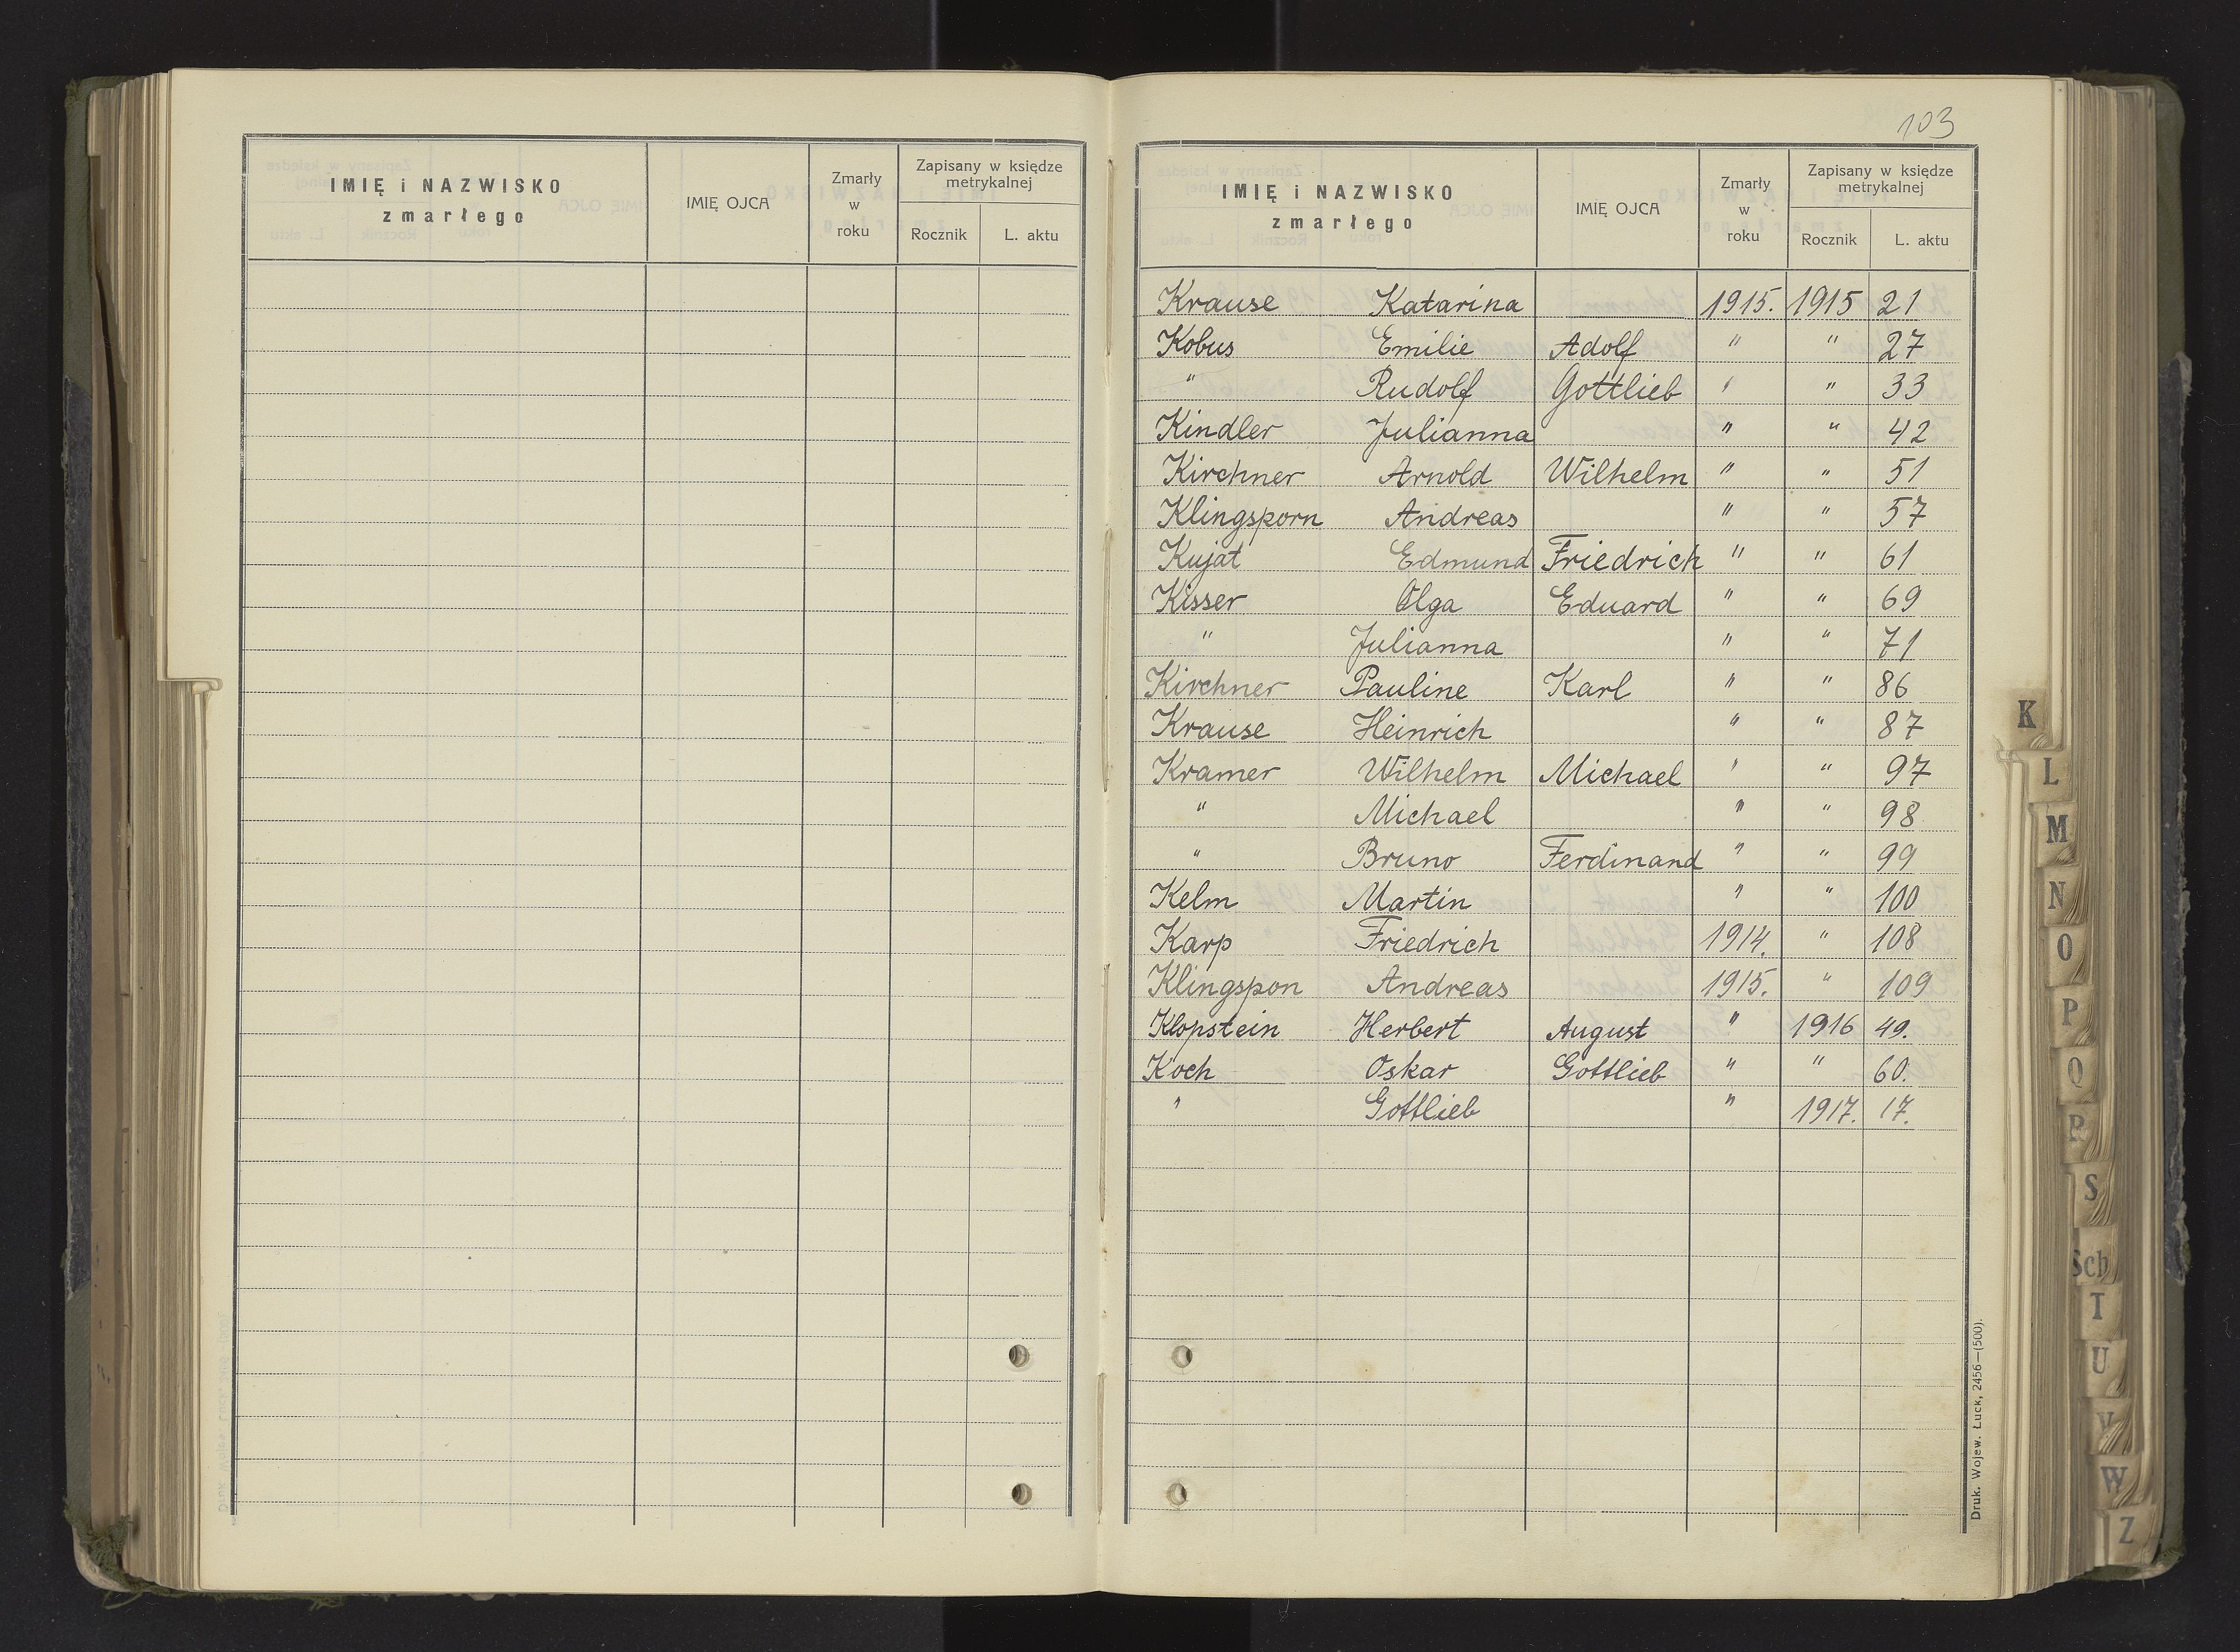 IMIĘ i NAZWISKO
zmarłego
IMIĘ OJCA
Zmarły
w
roku
Zapisany w księdze
metrykalnej
Rocznik
L. aktu
103
IMIĘ i NAZWISKO
zmarłego
IMIĘ OJCA
Zmarły
w
roku
Zapisany w księdze
metrykalnej
Rocznik
L. aktu
Krause Katarina — 1915. 1915 21
Kobus Emilie Adolf " " 27
" Rudolf Gottlieb " " 33
Kindler Julianna " " 42
Kirchner Arnold Wilhelm " " 51
Klingsporn Andreas " " 57
Kujat Edmund Friedrich " " 61
Kisser Olga Eduard " " 69
" Julianna " " 71
Kirchner Pauline Karl " " 86
Krause Heinrich " " 87
Kramer Wilhelm Michael " " 97
" Michael " " 98
" Bruno Ferdinand " " 99
Kelm Martin " " 100
Karp Friedrich 1914. " 108
Klingspon Andreas 1915. " 109
Klopstein Herbert August " 1916 49.
Koch Oskar Gottlieb " " 60.
" Gottlieb " 1917. 17.
Druk. Wojew. Łuck, 2456—(500).
K
L
M
N
O
P
Q
R
S
Sch
T
U
V
W
Z